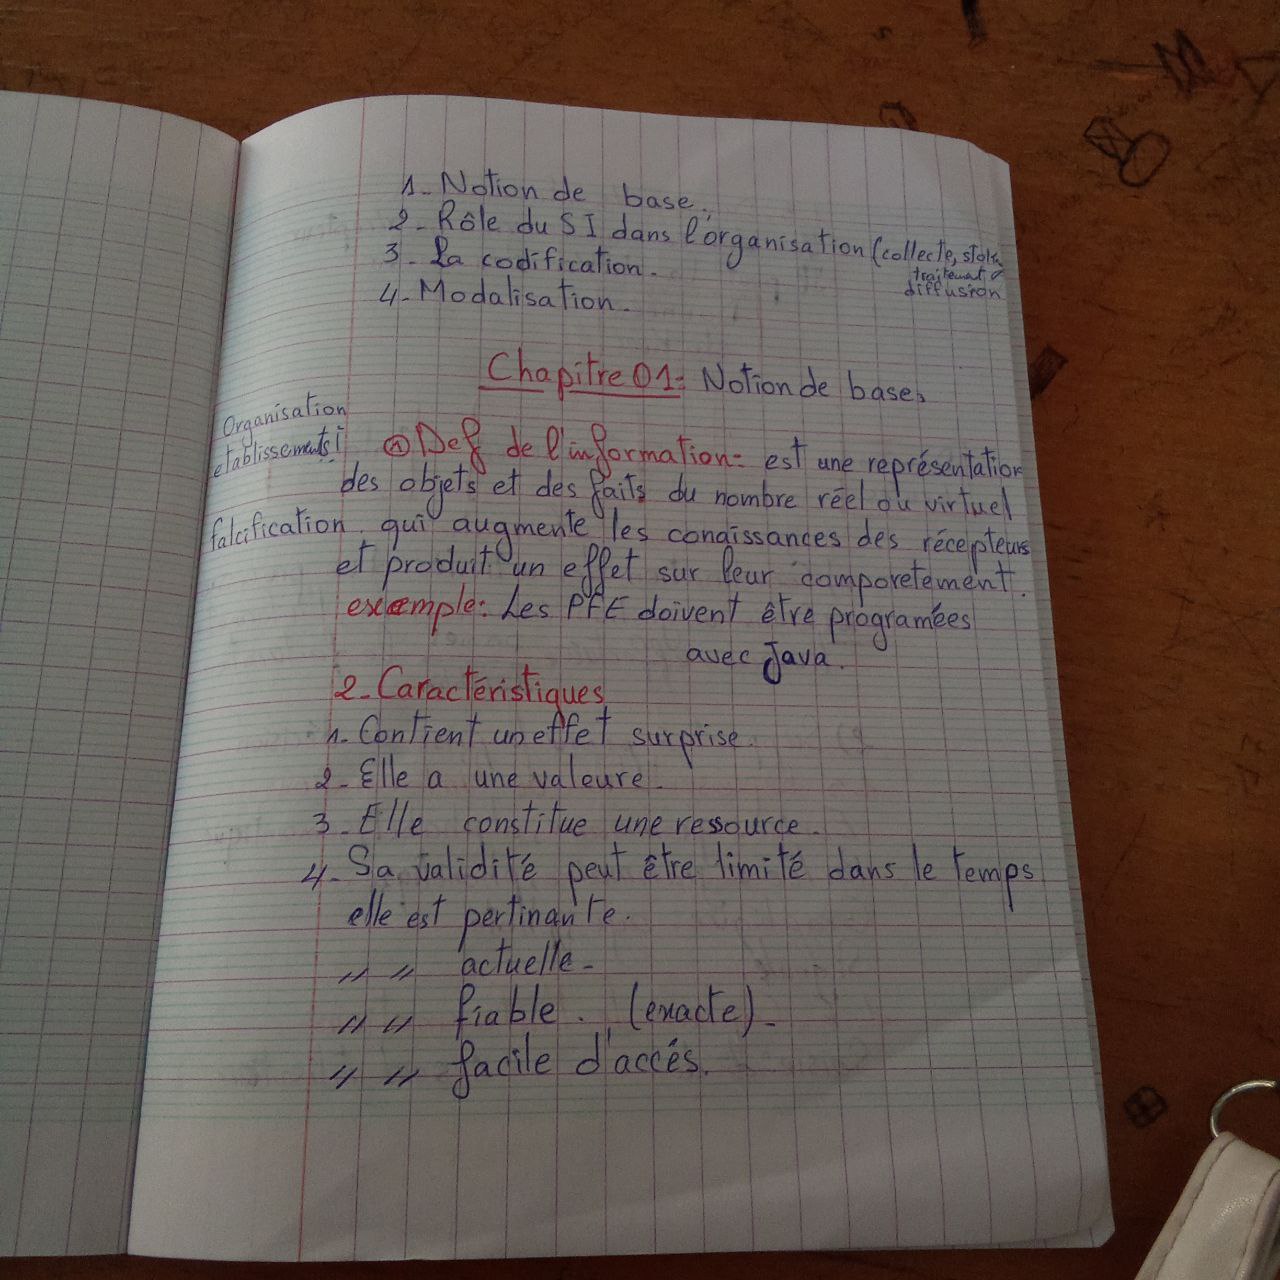 1- Notion de base.
2- Rôle du SI dans l'organisation (collecte,
traitemat
diffusion
3- La codification.
4- Modalisation.
Chapitre 01: Notion de base,
Organisation
etablissements
① Def de l'information: est une représentation
des objets et des faits du nombre réel ou virtuel
falcification
qui augmente les conaissances des récepteurs
et produit un effet sur leur comporetement.
example: Les PFE doivent être programées
avec Java.
2- Caractéristiques
1- Contient un effet surprise.
2- Elle a une valeure.
3- Elle constitue une ressource.
4- Sa validité peut être limité dans le temps
elle est pertinante.
" " actuelle-
" " fiable. (enacte)-
" " facile d'accés.